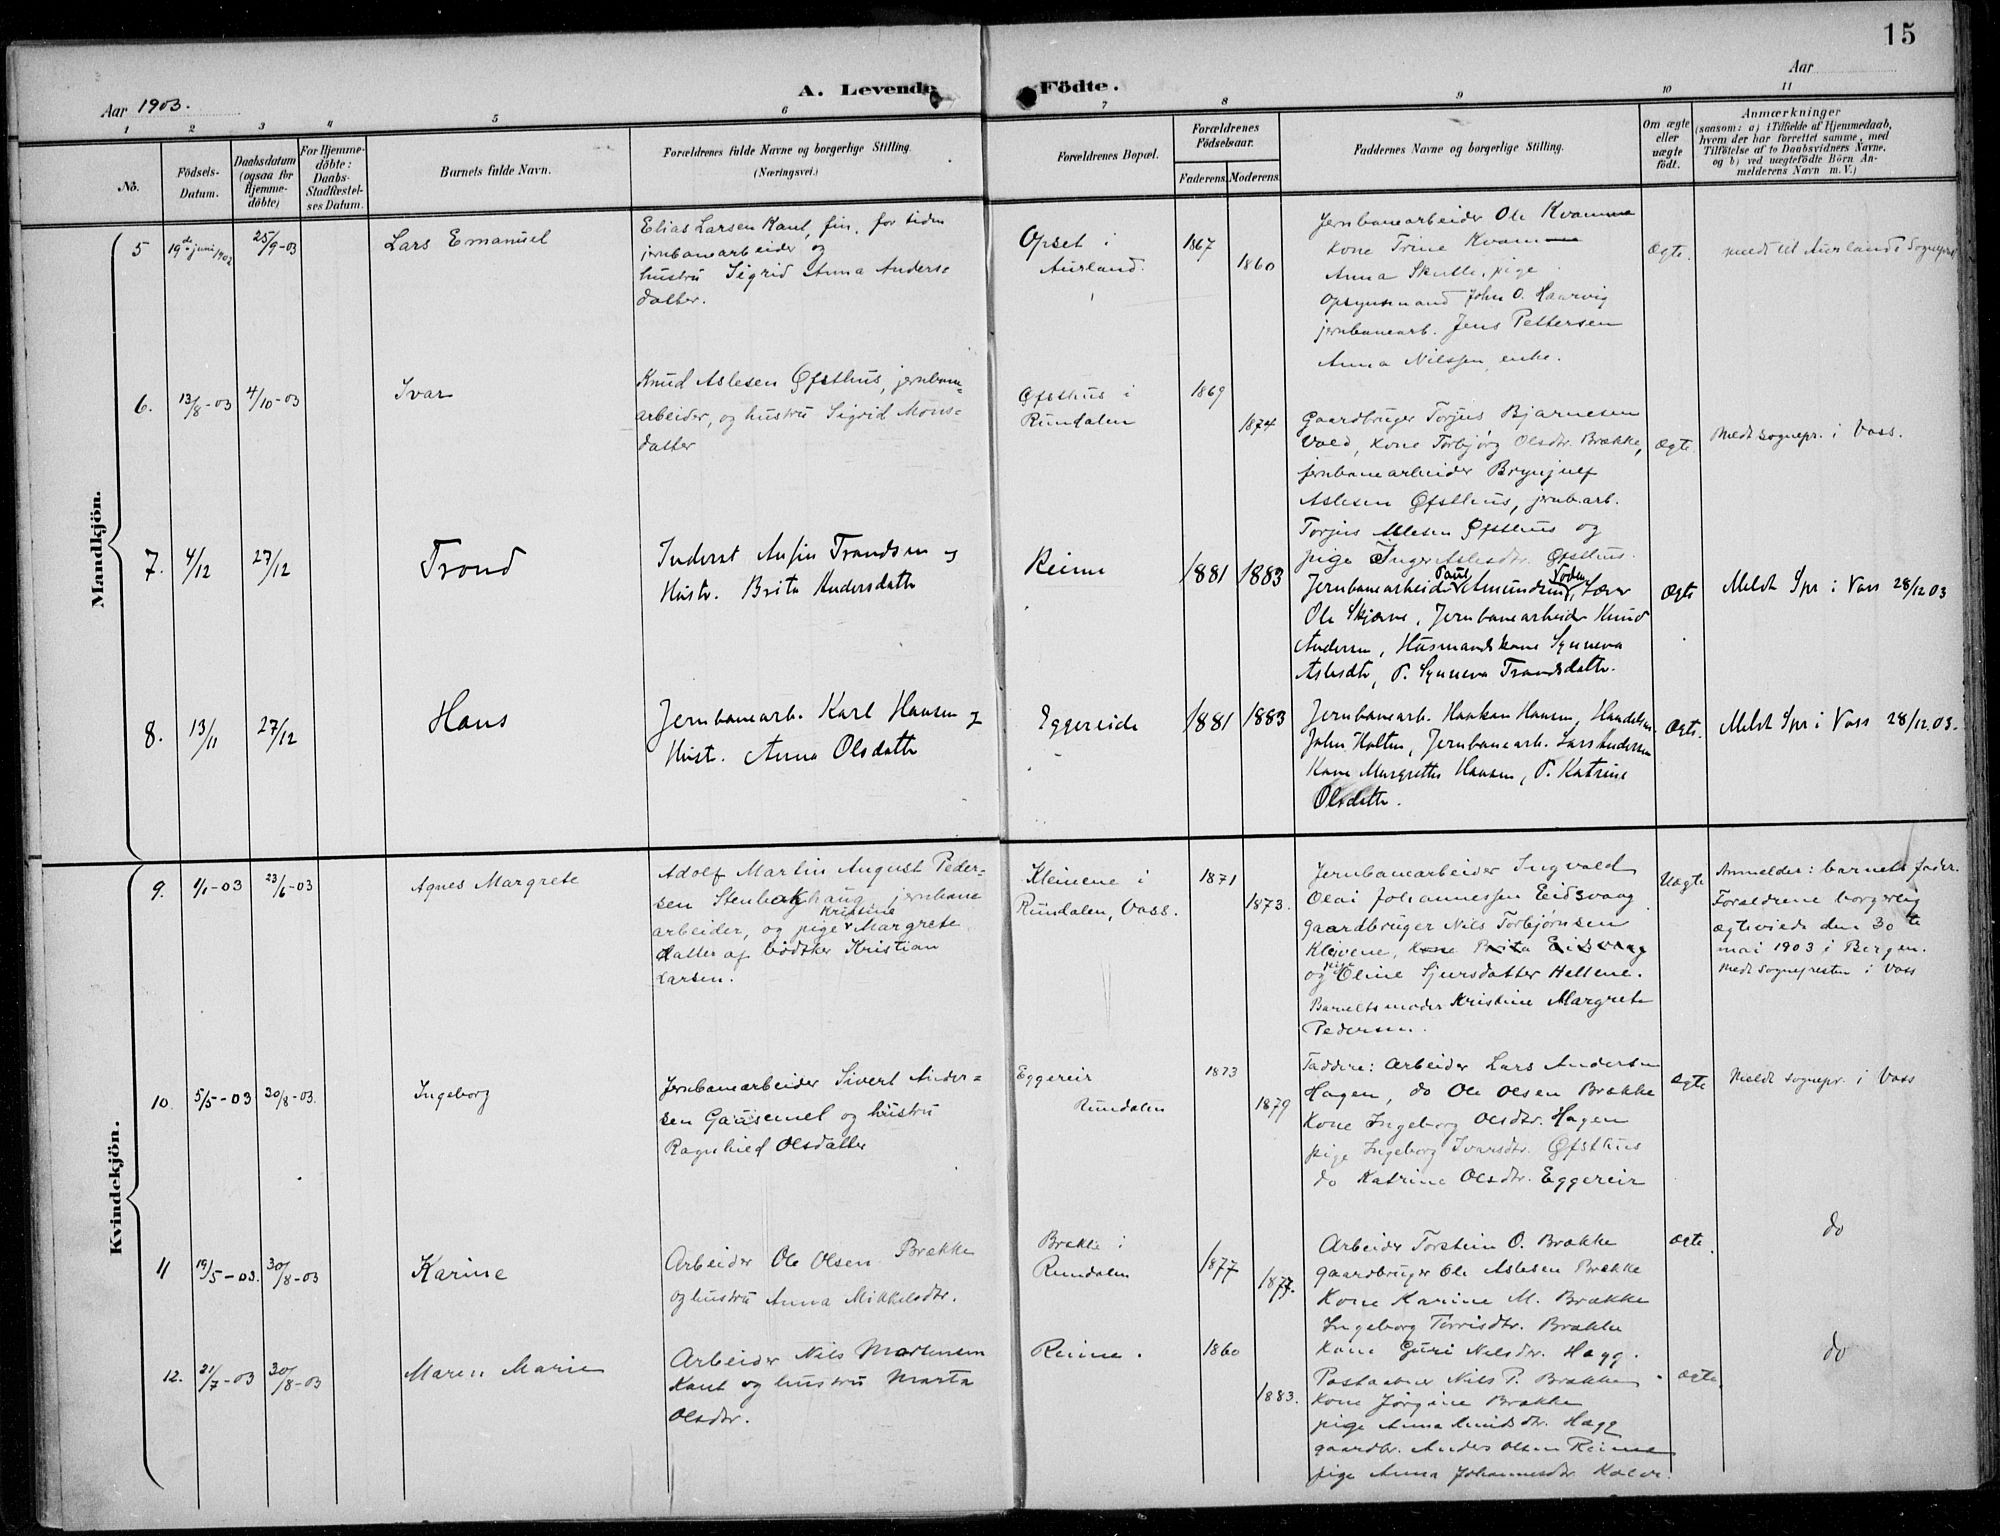 15
Aar 1903.
A. Levende Födte.
Aar
1 2 3 4 5 6 7 8 9 10 11
No.
Födsels-
Datum.
Daabsdatum
(ogsaa for
Hjemme-
döbte)
For Hjemme-
döbte:
Daabs-
Stadfæstel-
ses Datum.
Barnets fulde Navn.
Forældrenes fulde Navne og borgerlige Stilling.
(Næringsvei.)
Forældrenes Bopæl.
Forældrenes
Födselsaar.
Faderens. Moderens.
Faddernes Navne og borgerlige Stilling.
Om ægte
eller
uægte
født.
Anmærkninger
(saasom: a) i Tilfælde af Hjemmedaab,
hvem der har forrettet samme, med
Tilföielse af to Daabsvidners Navne,
og b) ved uægtefödte Börn An-
melderens Navn m. V.)
Mandkjön.
5
19de juni 1902
25/9-03
Lars Emanuel
Elias Larsen Kant, fin, for tiden
jernbanearbeider og
hustru Sigrid Anna Anders-
datter.
Opset i
Aurland.
1867
1860
Jernbanearbeider Ole Kvamme
Kone Trine Kvamme
Anna Skulle, pige
Opsynsmand John O. Haarvig
jernbanearb. Jens Pettersen
Anna Nilssen, enke.
Ægte.
meldt til Aurlands Sognepræst
6.
13/8-03
4/10-03
Ivar
Knud Aslesen Øfsthus, jernbane-
arbeider, og hustru Sigrid Mons-
datter
Øfsthus i
Rundalen
1869
1874
Gaardbruger Torjus Bjarnesen
Vold, Kone Torbjørg Olsdtr. Brække,
jernbanearbeider Brynjulf
Aslesen Øfsthus, jernbarb.
Torjus Aslesen Øfsthus og
pige Inger Aslesdtr. Øfsthus.
Ægte
Meldt sognepr. i Voss.
7.
4/12
27/12
Trond
Inderst Anfin Trondsen og
Hustr. Brita Andersdatter
Reime
1881
1883
Jernbanearbeider Paul Amundsen, Lærer
Ole Skjerve, Jernbanearbeider Knud
Andersen, Husmandskone Synneva
Aslesdtr, P. Synneva Trondsdatter.
Ægte
Meldt Spr i Voss 28/12 03
8.
13/11
27/12
Hans
Jernbanearb. Karl Hansen og
Hustr. Anna Olsdatter
Eggereide
1881
1883
Jernbanearb. Haakon Hansen, Handelsm.
John Holten, Jernbanearb. Lars Andersen
Kone Margrethe Hansen, P. Katrine
Olsdatter.
Ægte.
Meldt Spr i Voss 28/12.03.
Kvindekjön.
9.
1/1-03
23/6-03
Agnes Margrete
Adolf Martin August Peder-
sen Stenhaghaug, jernbane
arbeider, og pige Kristine Margrete
datter af bødker Kristian
Larsen.
Kleivene i
Rundalen, Voss.
1871
1873.
Jernbanearbeider Ingvald
Olai Johannessen Eidsvaag
gaardbruger Nils Torbjørnsen
Kleivene, Kone Brita Eidsvaag
og pige Oline Sjursdatter Hellene.
Barnets moder Kristine Margrete
Pedersen.
Uægte
Anmelder: barnets fader.
Forældrene borgerlig
ægteviede den 30te
mai 1903 i Bergen.
Medt sognepresten i Voss
10.
5/5-03
30/8-03.
Ingeborg
Jernbanearbeider Sivert Ander-
sen Gaasemel og hustru
Ragnhild Olsdatter
Eggereir
Rundalen
1873
1879
Faddere: Arbeider Lars Andersen
Hagen, do Ole Olsen Brække
Kone Ingeborg Olsdtr. Hagen
pige Ingeborg Ivarsdtr. Øfsthus
do Katrine Olsdtr. Eggereir
ægte
Meldt sognepr. i Voss
11
19/5-03.
30/8-03
Karine
Arbeider Ole Olsen Brække
og hustru Anna Mikkelsdtr.
Brække i
Rundalen
1877
1877.
Arbeider Torstein O. Brække
gaardbruger Ole Aslesen Brække
Kone Karine M. Brække
Ingeborg Torrisdtr. Brække
ægte.
do
12.
21/7-03
30/8-03
Maren Marie
Arbeider Nils Mortensen
Kant og hustru Marta
Olsdtr.
Reime.
1860
1883.
Kone Guri Nilsdtr. Hagg.
Postaabner Nils P. Brække
Kone Jørgine Brække
pige Anna Knudsdtr. Hagg
gaardbr. Anders Olsen Reime
pige Anna Johannesdtr.
ægte.
do